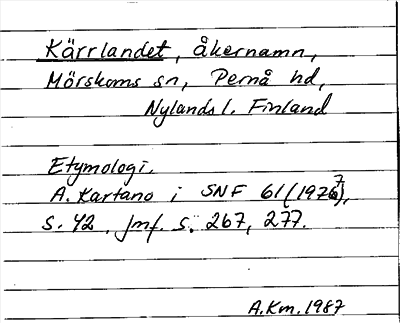 Kärrlandet, åkernamn,
Mörskoms sn, Pernå hd,
Nylands l. Finland
Etymologi.
A. Kartano i SNF 61 (1977),
s. 42, jmf. s. 267, 277.
A.Km. 1987